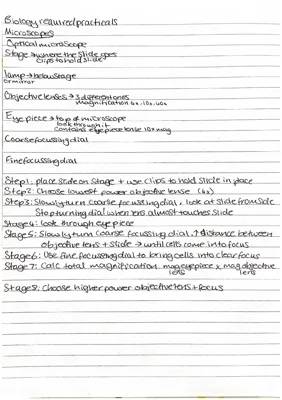 Biology required practicals
Microscopes
Optical microscope
Stage → where the slide goes
clips to hold slide
lamp → below stage
or mirror
Objective lenses → 3 different ones
magnification 4x, 10x, 40x
Eye piece → top of microscope
look through it
contains eye piece lense 10x mag
Coarse focussing dial
Fine focussing dial
Step1: place slide on stage + use clips to hold slide in place
Step2: Choose lowest power objective lense (4x)
Step3: Slowly turn coarse focussing dial, look at slide from side
Stop turning dial when lens almost touches slide
Stage4: look through eye piece
Stage5: Slowly turn coarse focussing dial. ↑ distance between
objective lens + slide → until cells come into focus
Stage6: Use fine focussing dial to bring cells into clear focus
Stage7: Calc total magnification. mag eyepiece x mag objective
lens lens
Stage8: Choose higher power objective lens + focus